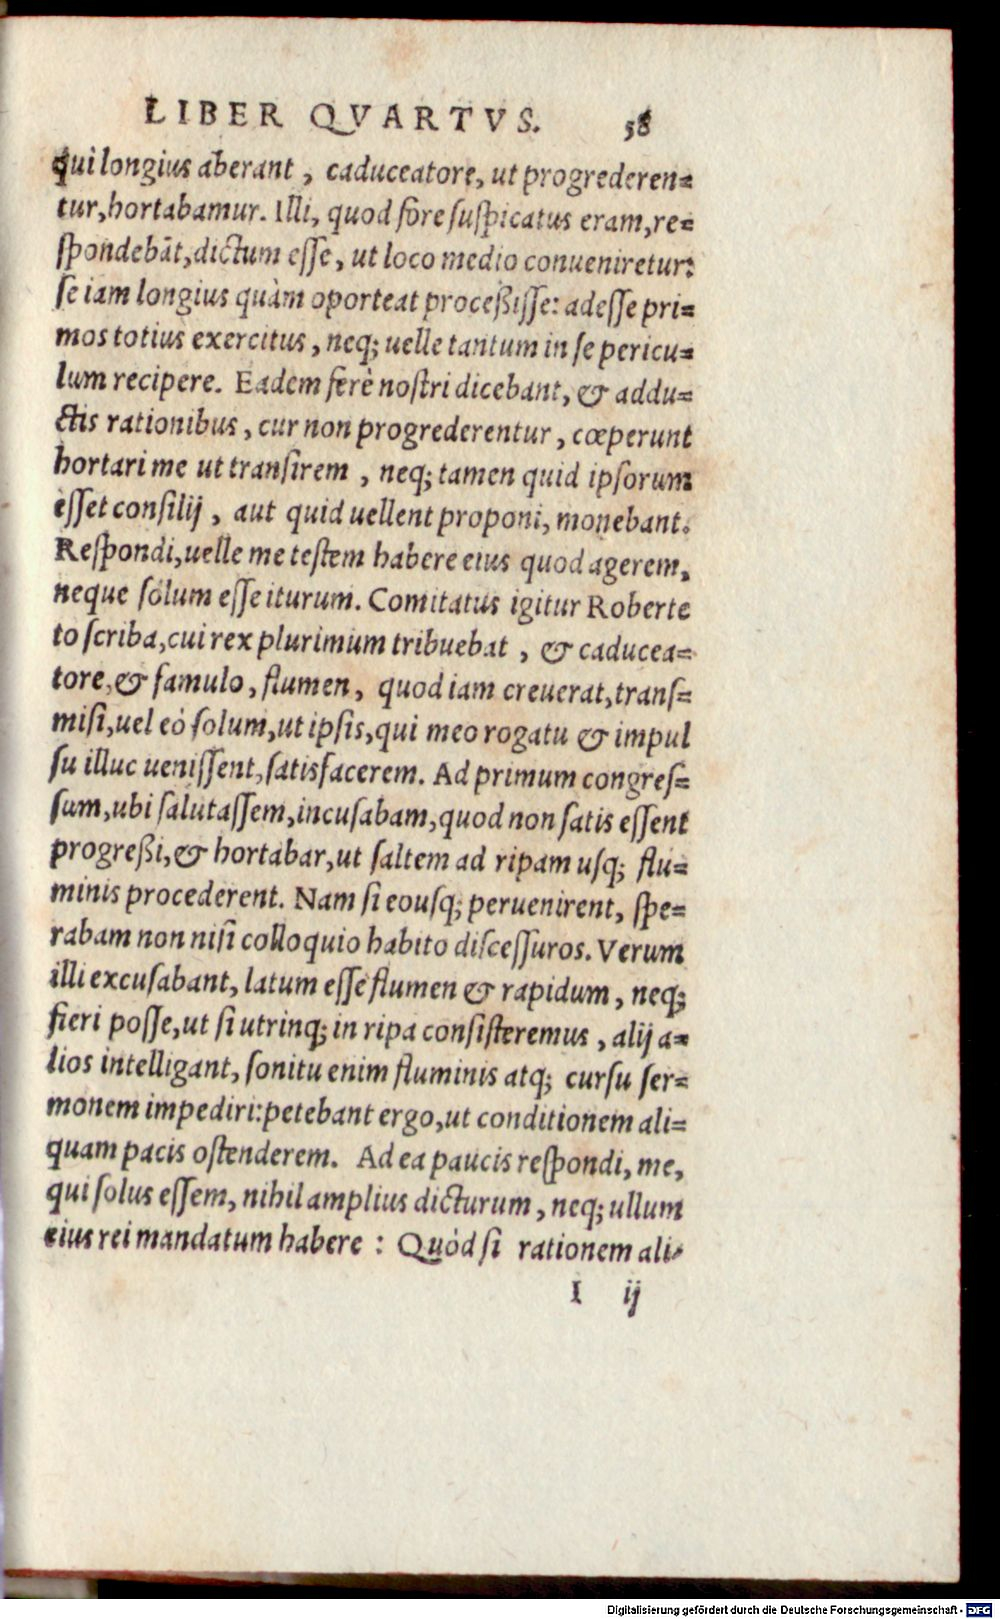 LIBER QVARTVS. 58
qui longius aberant, caduceatore, ut progrederen=
tur, hortabamur. Illi, quod fore suſpicatus eram, re=
ſpondebāt, dictum eſſe, ut loco medio conueniretur:
ſe iam longius quàm oporteat proceßiſſe: adeſſe pri=
mos totius exercitus, neq; uelle tantum in ſe pericu=
lum recipere. Eadem ferè noſtri dicebant, & addu=
ctis rationibus, cur non progrederentur, cœperunt
hortari me ut tranſirem, neq; tamen quid ipſorum
eſſet conſilij, aut quid uellent proponi, monebant.
Reſpondi, uelle me teſtem habere eius quod agerem,
neque ſolum eſſe iturum. Comitatus igitur Roberte
to ſcriba, cui rex plurimum tribuebat, & caducea=
tore, & famulo, flumen, quod iam creuerat, tranſ=
miſi, uel eò ſolum, ut ipſis, qui meo rogatu & impul
ſu illuc ueniſſent, ſatisfacerem. Ad primum congreſ=
ſum, ubi ſalutaſſem, incuſabam, quod non ſatis eſſent
progreßi, & hortabar, ut ſaltem ad ripam uſq; flu=
minis procederent. Nam ſi eouſq; peruenirent, ſpe=
rabam non niſi colloquio habito diſceſſuros. Verum
illi excuſabant, latum eſſe flumen & rapidum, neq;
fieri poſſe, ut ſi utrinq; in ripa conſiſteremus, alij a=
lios intelligant, ſonitu enim fluminis atq; curſu ſer=
monem impediri: petebant ergo, ut conditionem ali=
quam pacis oſtenderem. Ad ea paucis reſpondi, me,
qui ſolus eſſem, nihil amplius dicturum, neq; ullum
eius rei mandatum habere: Quòd ſi rationem ali=
I ij
Digitalisierung gefördert durch die Deutsche Forschungsgemeinschaft - DFG